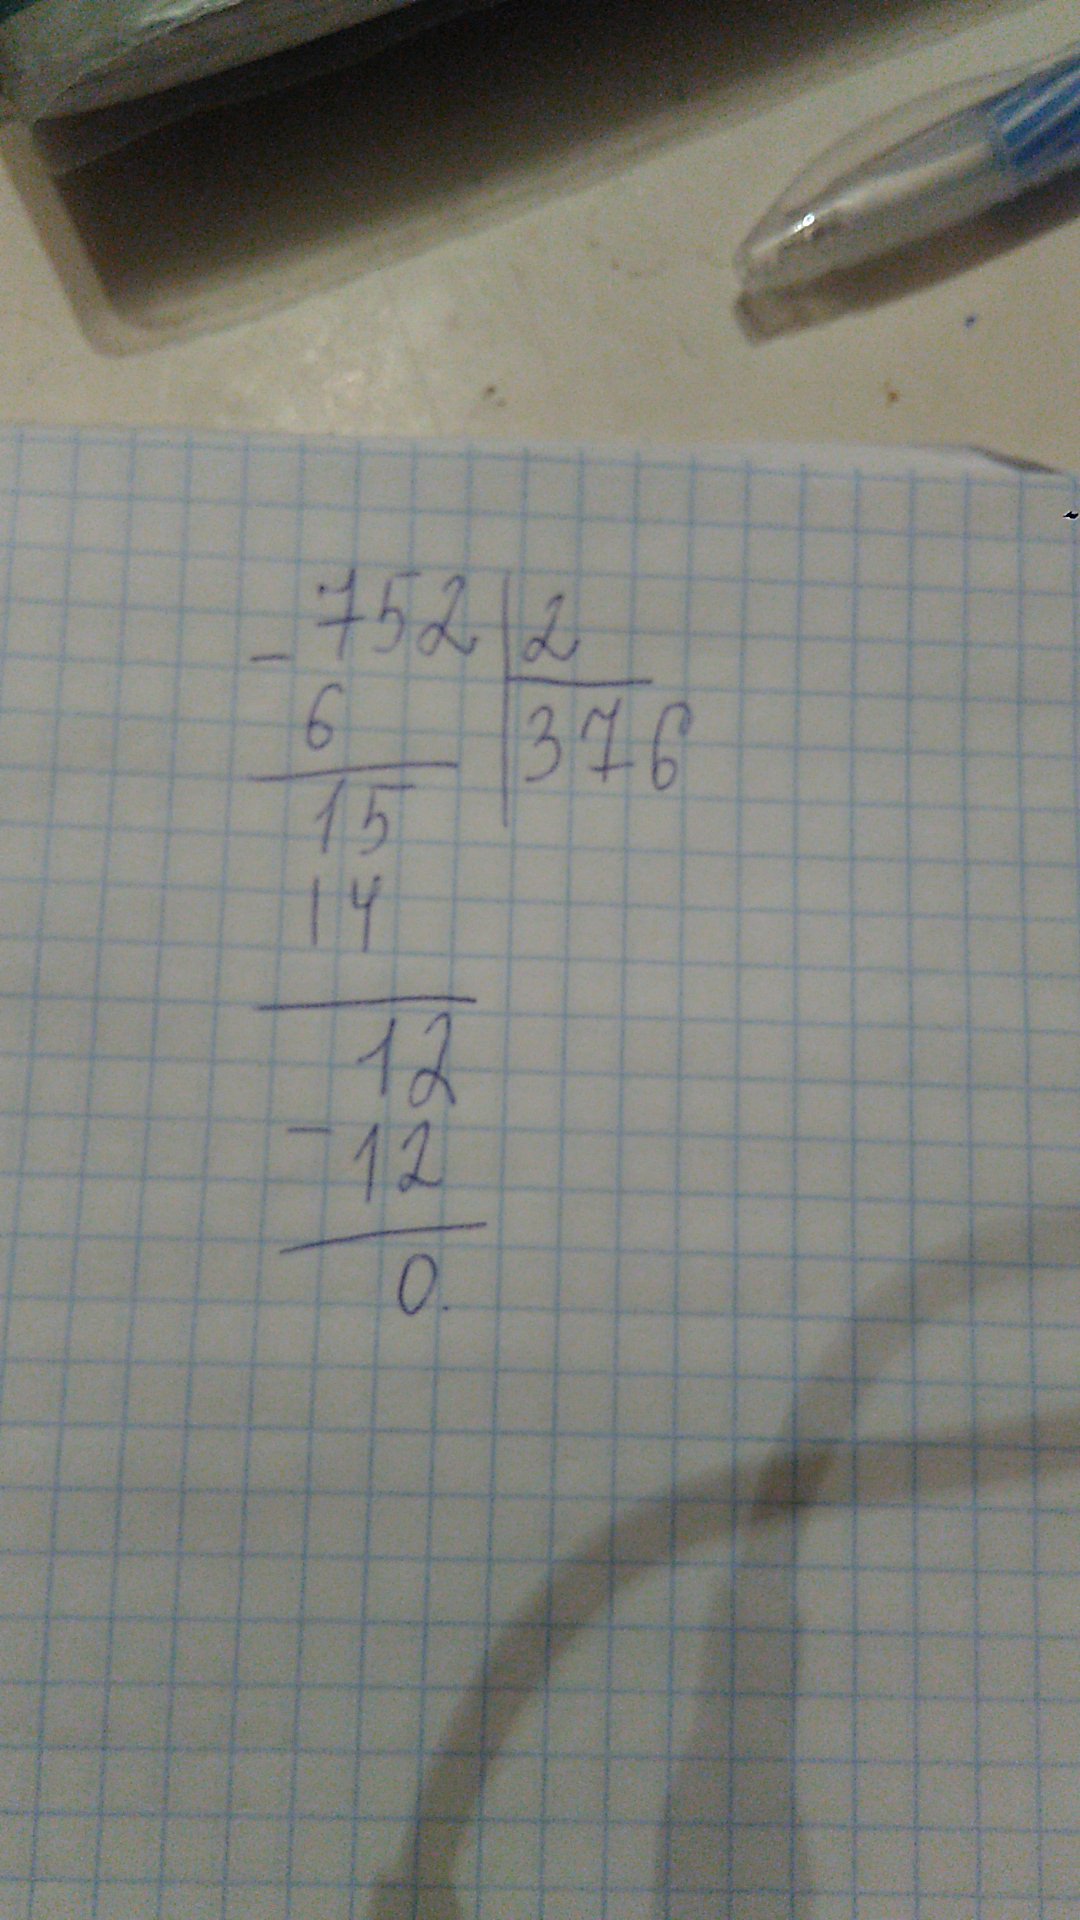 - 752 | 2
6 | 376
15
14
12
- 12
0.